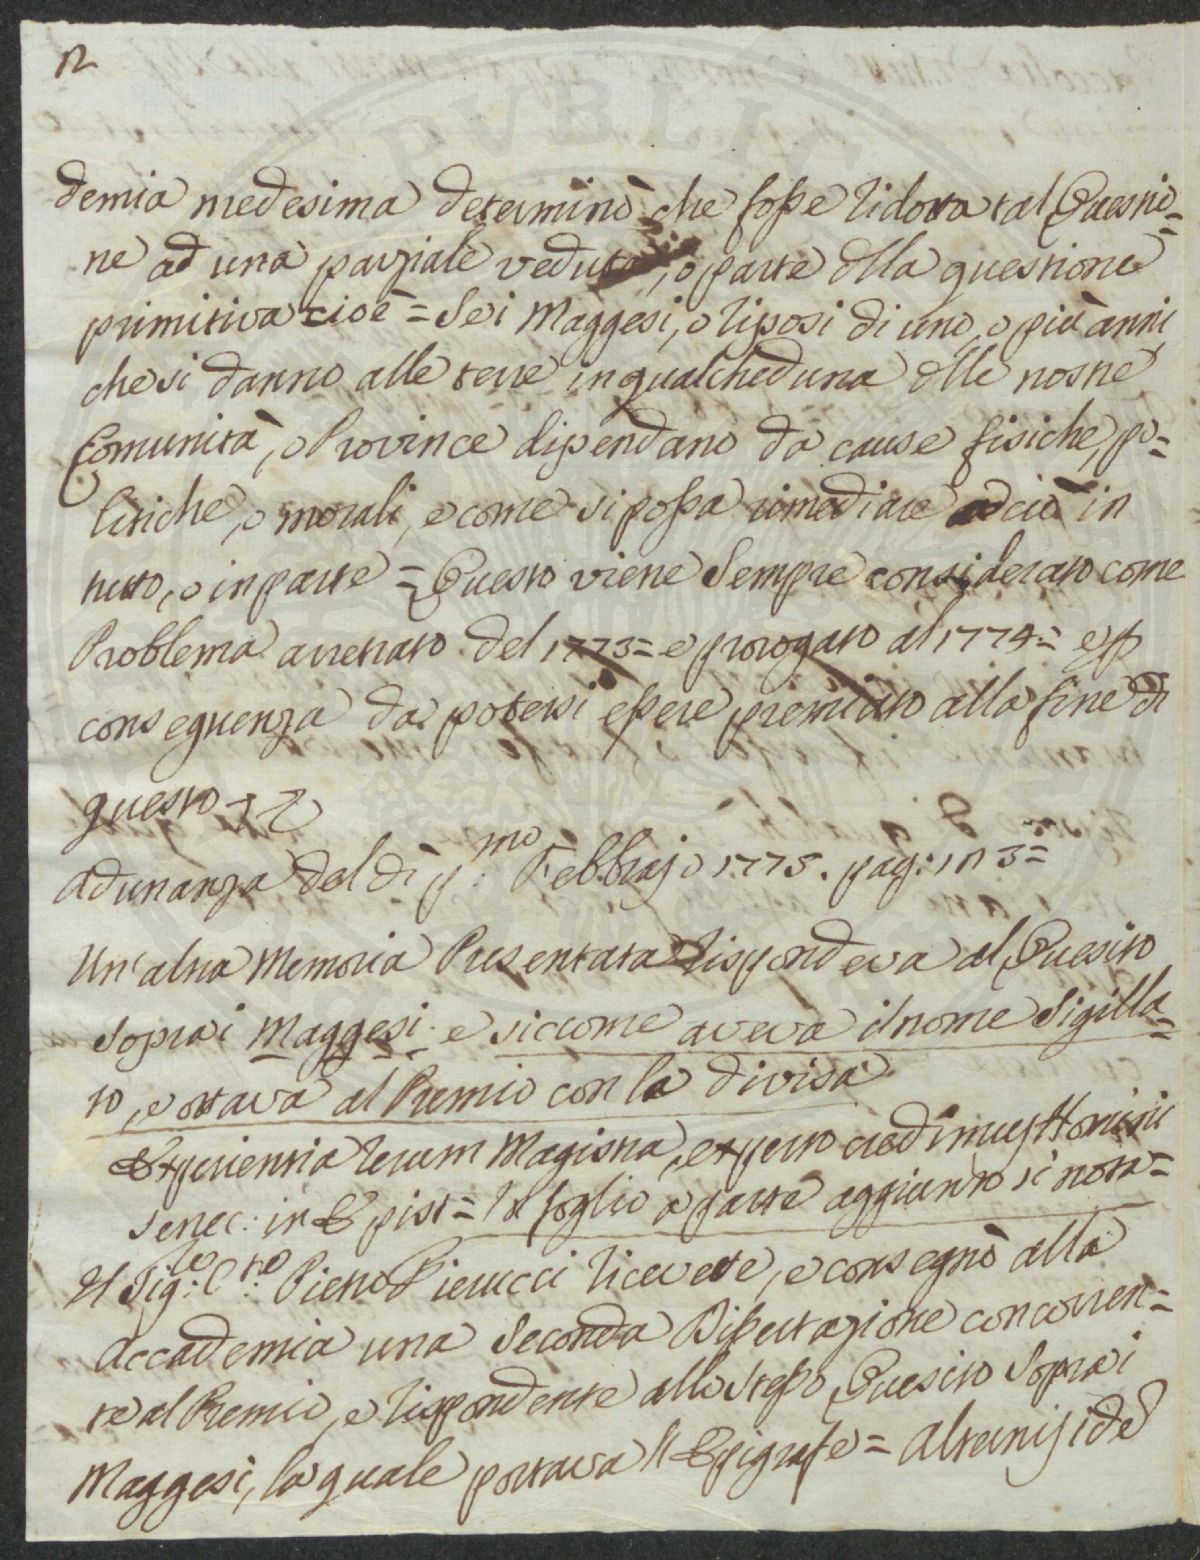 12
PUBLIC
demia medesima determinò che fosse ridotta tal Questio=
ne ad una parziale veduta, o parte dlla questione
primitiva cioè = Se i Maggesi, o riposi di uno, o più anni
che si danno alle terre in qualcheduna dlle nostre
Comunità, o Province dipendano da cause fisiche, po=
litiche, o morali, e come si possa rimediare a ciò in
tutto, o in parte = Questo viene sempre considerato come
Problema arretrato del 1773= e prorogato al 1774= e p
conseguenza da potersi essere premiato alla fine di
questo
Adunanza del dì p:mo Febbrajo 1775. pag: 113=
Un'altra Memoria Presentata rispondeva al Quesito
sopra i Maggesi, e siccome aveva il nome Sigilla=
to, e ottava al Premio con la divisa
Experientia rerum Magistra, experto credimus Homini
Senec: in Epist= In foglio a parte aggiunto si nota=
Il Sig:re C:te Pietro Pierucci ricevette, e consegnò alla
Accademia una Seconda Dissertazione concorren=
te al Premio, e rispondente allo stesso Quesito Sopra i
Maggesi, la quale portava l'Epigrafe = Alternis ide